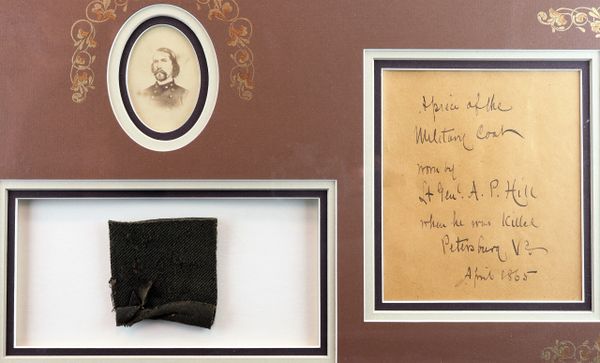 A piece of the
Military Coat
worn by
Lt Genl. A. P. Hill
when he was Killed
Petersburg Va
April 1865